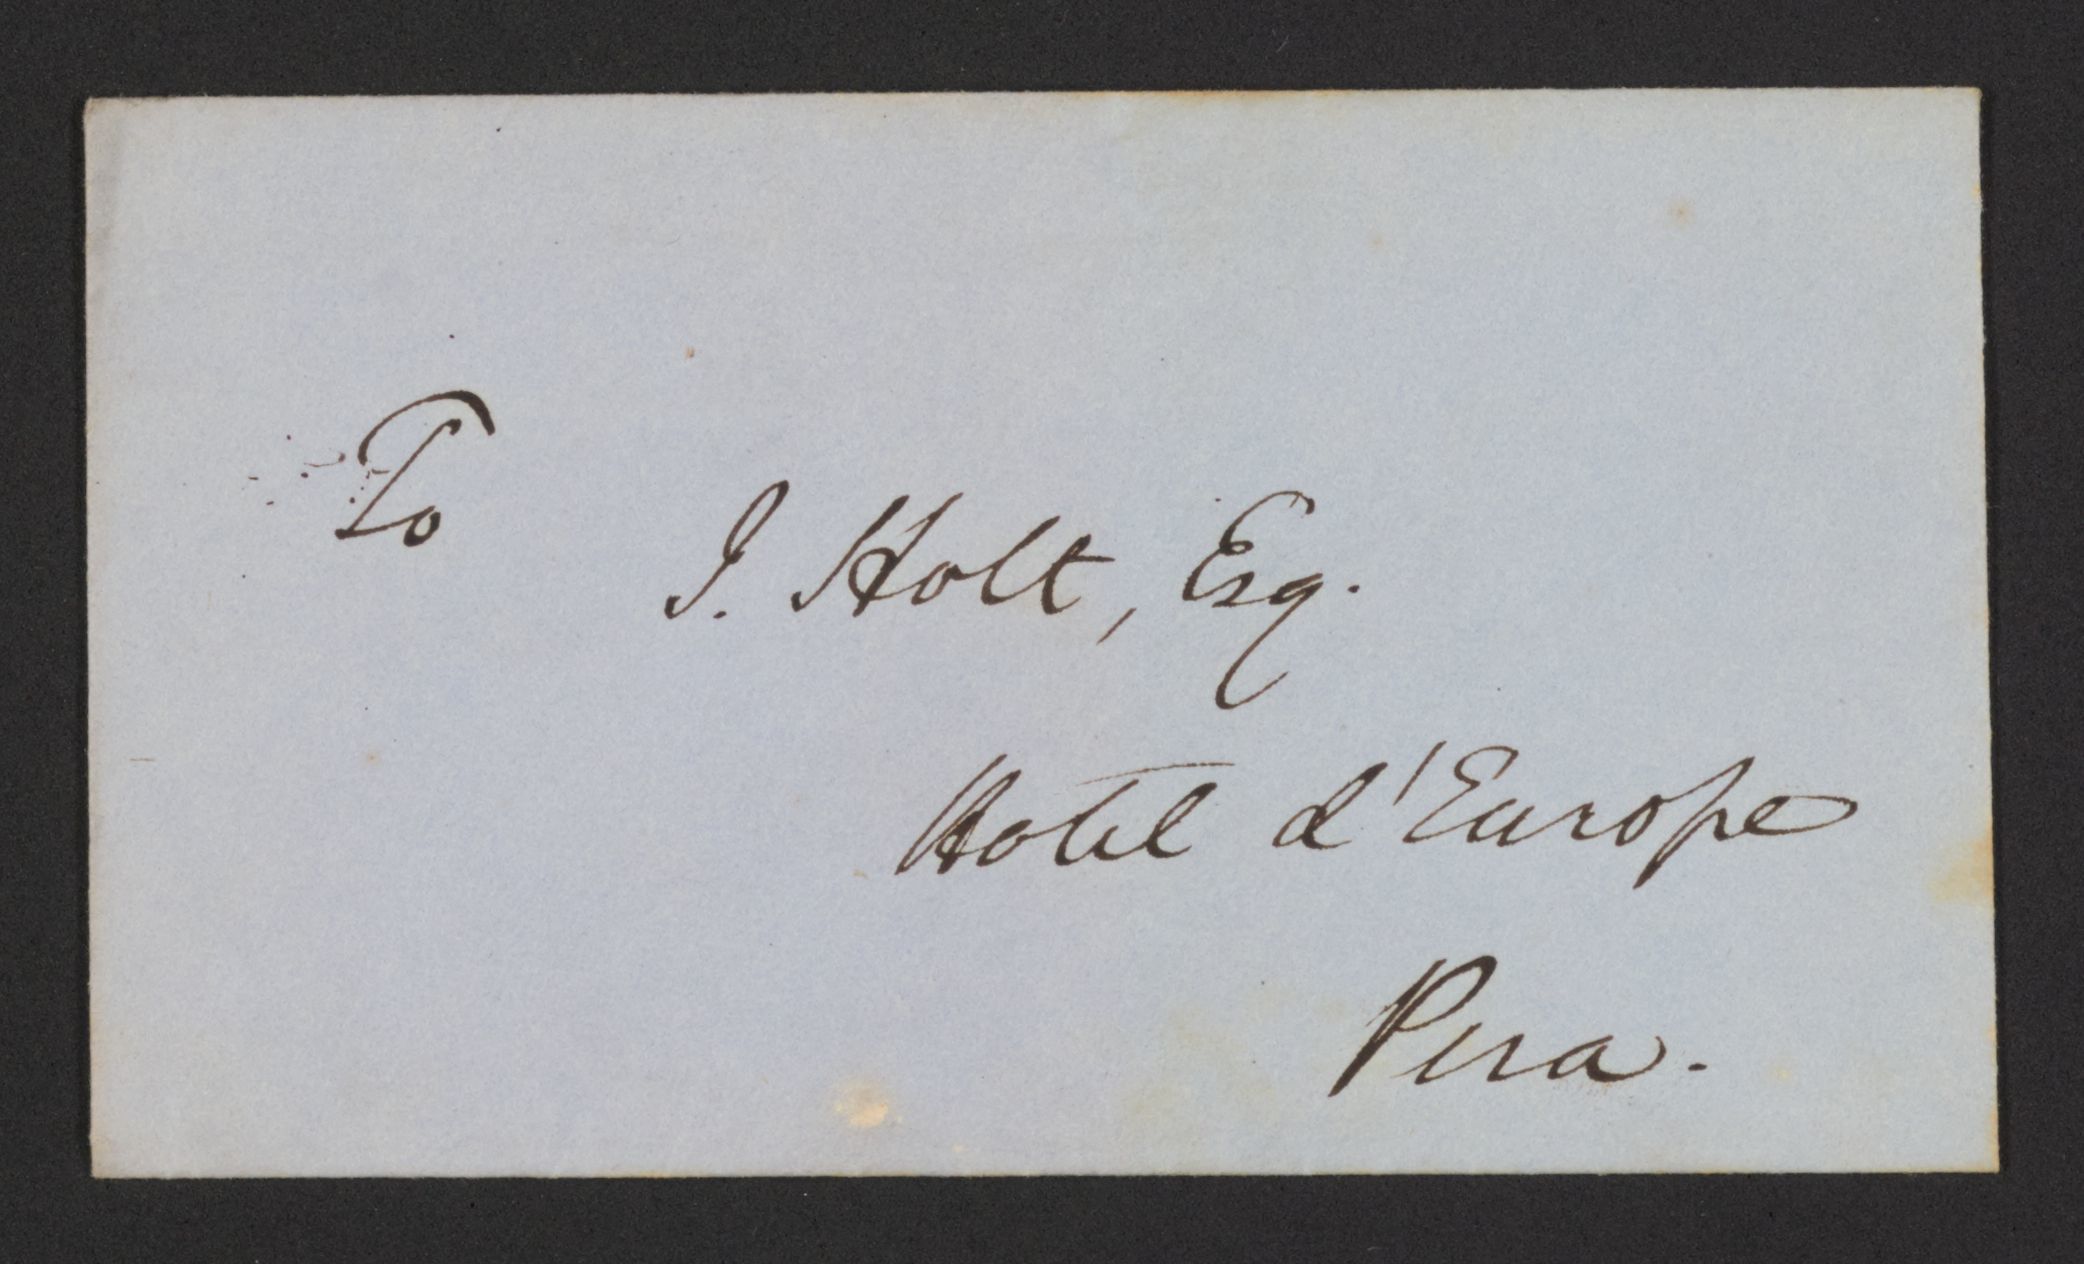 To
J. Holt, Esq.
Hotel d'Europe
Pera.